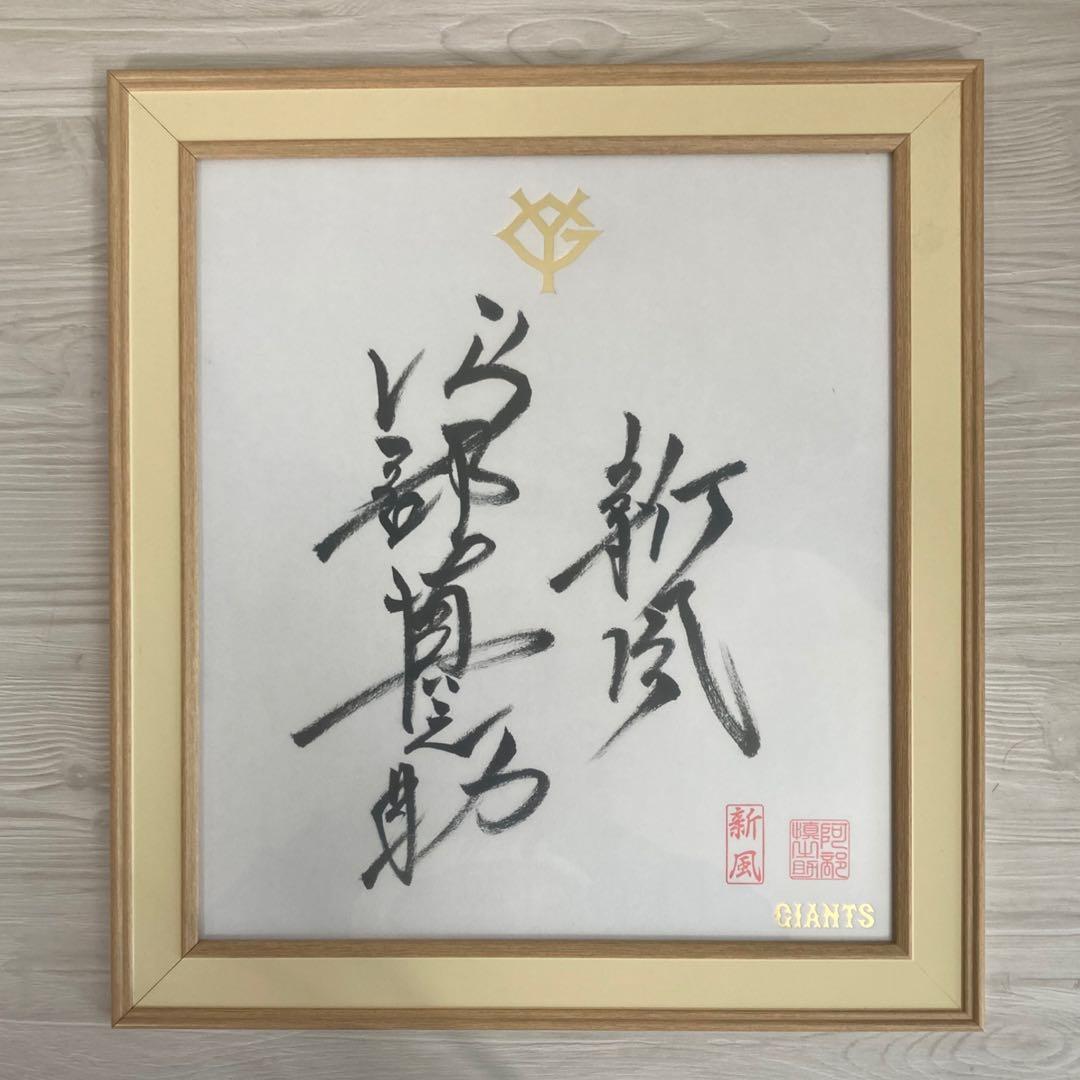 YG
新風
阿部慎之助
新風
阿部
慎之助
GIANTS